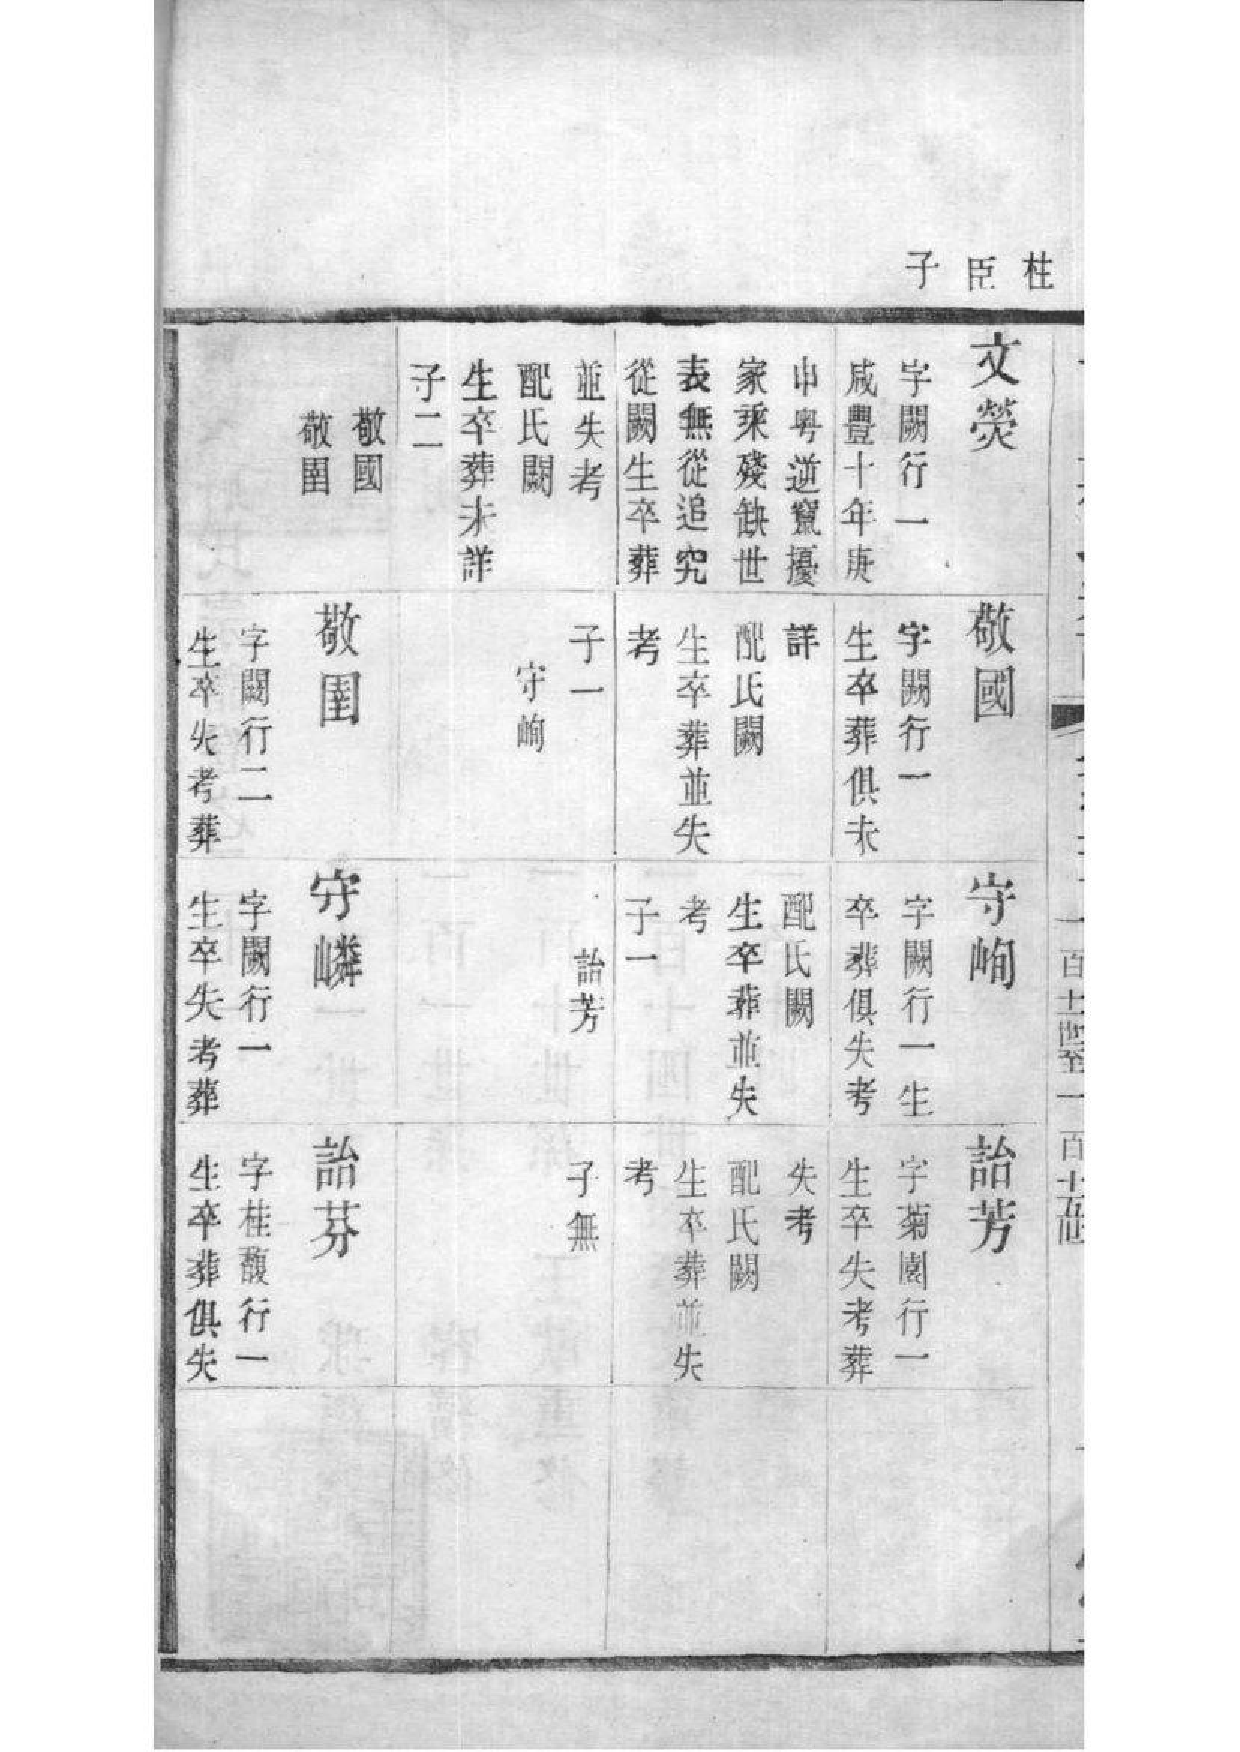 柱臣子
文熒
字闕行一
咸豐十年庚
申粤逆竄擾
家乘殘缺世
表無從追究
從闕生卒葬
並失考
配氏闕
生卒葬未詳
子二
敬國
敬圉
敬國
字闕行一
生卒葬俱未
詳
配氏闕
生卒葬並失
考
子一
守峋
敬圉
字闕行二
生卒失考葬
守峋
字闕行一生
卒葬俱失考
配氏闕
生卒葬並失
考
子一
詒芳
守嶙
字闕行一
生卒失考葬
詒芳
字菊園行一
生卒失考葬
失考
配氏闕
生卒葬並失
考
子無
詒芬
字桂馥行一
生卒葬俱失